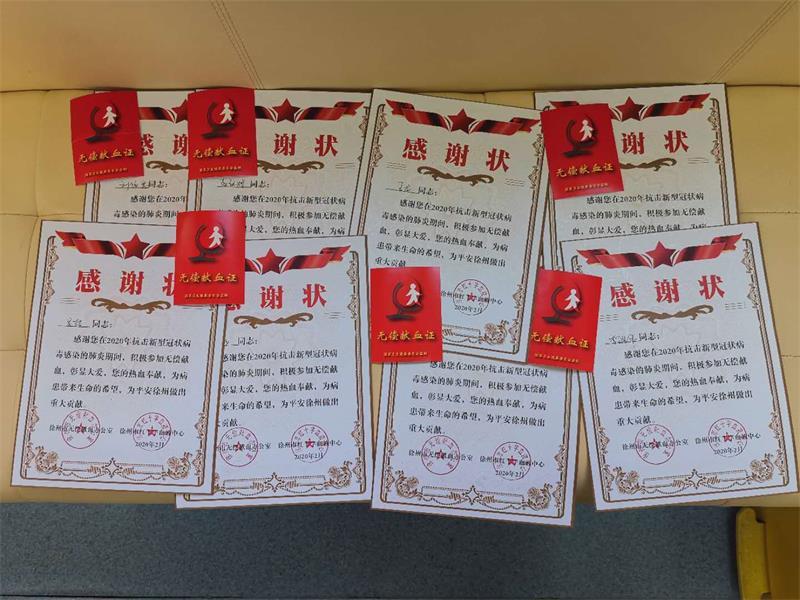 无偿献血证
无偿献血证
谢状
同志：
感谢您在2020年
毒感染的肺炎期间，
谢状
同志：
感谢您在2020年抗击新型冠状病
毒感染的肺炎期间，积极参加无偿献
血，彰显大爱，您的热血奉献，为病
感谢状
同志：
感谢您在2020年抗击新型冠状病
毒感染的肺炎期间，积极参加无偿献
血，彰显大爱，您的热血奉献，为病
患带来生命的希望，为平安徐州做出
重大贡献。
徐州市红十字血液中心
2020年2月
无偿献血证
谢状
同志：
感谢您在2020年抗击新型冠状病
毒感染的肺炎期间，积极参加无偿献
血，彰显大爱，您的热血奉献，为病
感谢
同志：
感谢您在2020年抗击新型冠状病
毒感染的肺炎期间，积极参加无偿献
血，彰显大爱，您的热血奉献，为病
患带来生命的希望，为平安徐州做出
重大贡献。
徐州市无偿献血办公室
2020年2月
无偿献血证
谢状
同志：
感谢您在2020年抗击新型冠状病
毒感染的肺炎期间，积极参加无偿献
血，彰显大爱，您的热血奉献，为病
患带来生命的希望，为平安徐州做出
贡献。
徐州市无偿献血办公室
徐州市红十字血液中心
2020年2月
无偿献血证
感谢您在2020年抗击新型冠状病
毒感染的肺炎期间，积极参加无偿献
血，彰显大爱，您的热血奉献，为病
患带来生命的希望，为平安徐州做出
重大贡献。
徐州市无偿献血办公室
徐州市红十字血液中心
2020年2月
无偿献血证
感谢状
同志：
感谢您在2020年抗击新型冠状病
毒感染的肺炎期间，积极参加无偿献
血，彰显大爱，您的热血奉献，为病
患带来生命的希望，为平安徐州做出
重大贡献。
徐州市无偿献血办公室
徐州市红十字血液中心
2020年2月